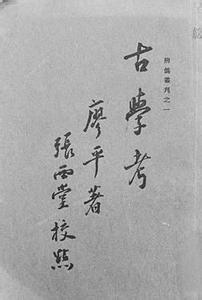 辨僞叢刊之一
古學考
廖平著
張西堂校點